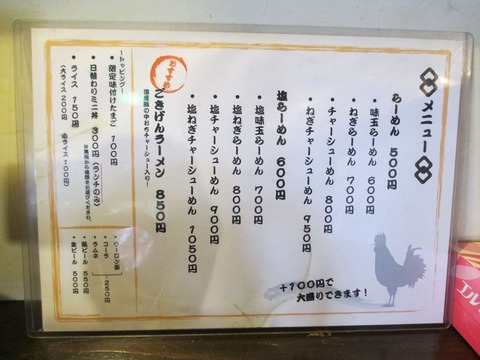 メニュー
らーめん 500円
・味玉らーめん 600円
・ねぎらーめん 700円
・チャーシューめん 800円
・ねぎチャーシューめん 950円
塩らーめん 600円
・塩味玉らーめん 700円
・塩ねぎらーめん 800円
・塩チャーシューめん 900円
・塩ねぎチャーシューめん 1050円
おすすめ
ごきげんラーメン 850円
国産豚の中おちチャーシュー入り!
～トッピング～
・限定味付けたまご 100円
・日替わりミニ丼 300円(ランチのみ)
・ライス 150円
(大ライス 200円 小ライス 100円)
・ウーロン茶
・コーラ
・ラムネ
250円
・瓶ビール 550円
・生ビール 500円
+100円で
大盛りできます!
エル